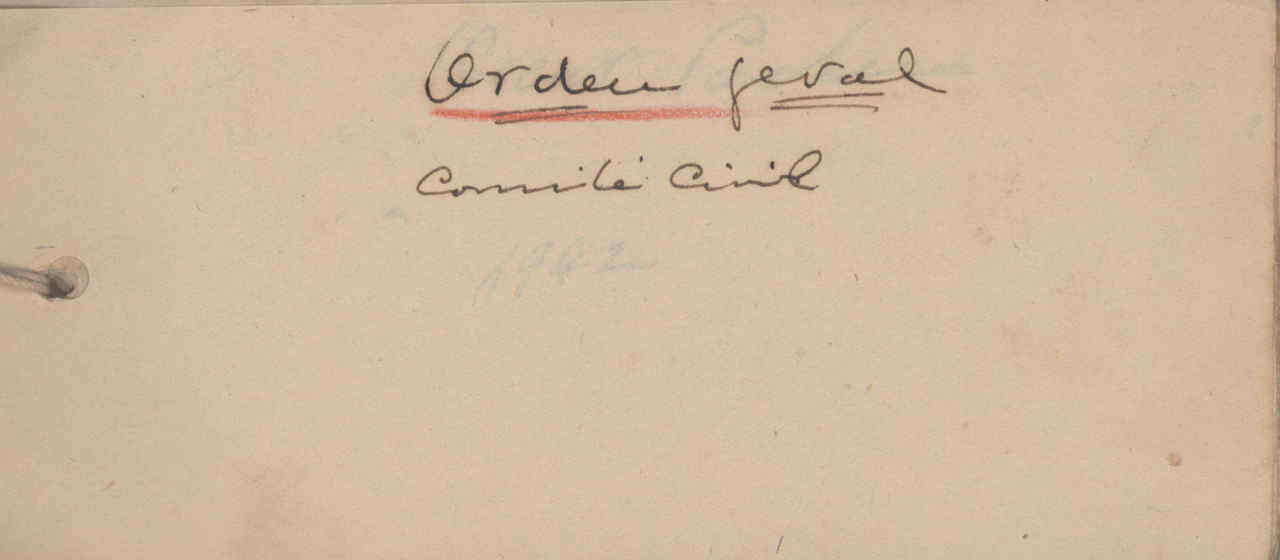 Orden geral
Comité Civil
1942